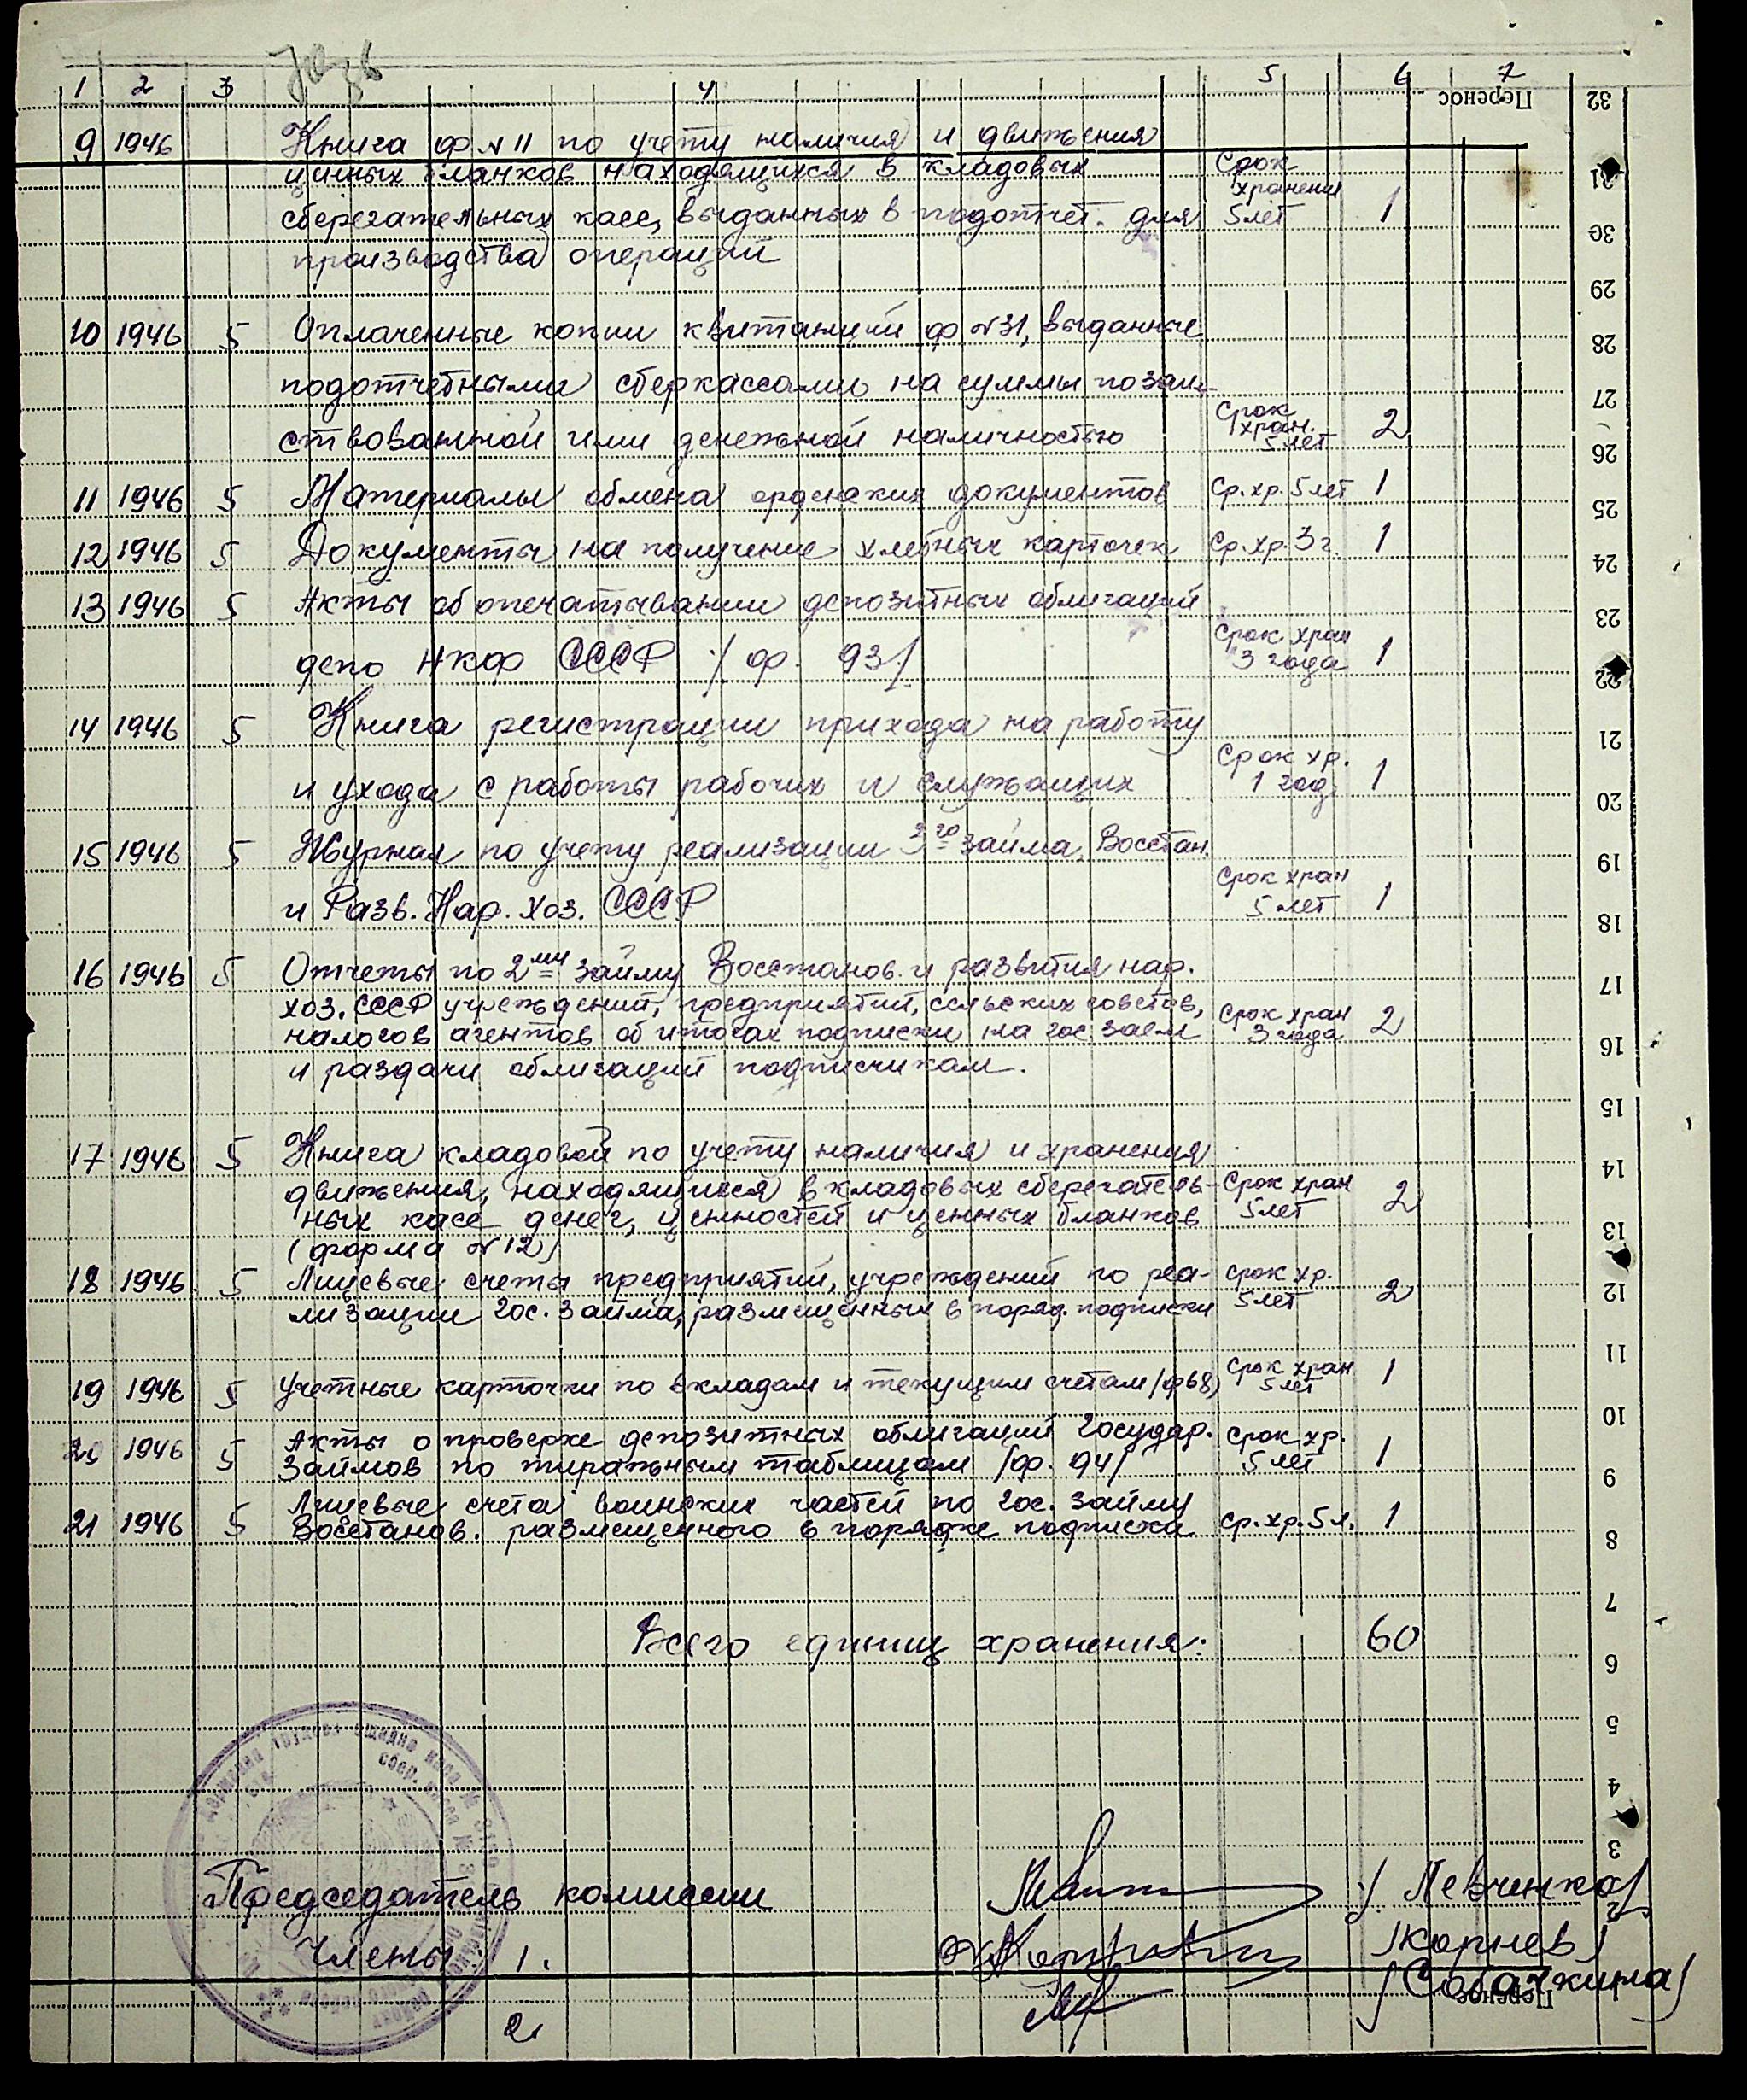 1 2 3 4 5 6 7
Перенос 32
9 1946 Книга ф N 11 по учету наличия и движения
ценных бланков находящихся в кладовых Срок 31
хранения
сберегательных касс, выданных в подотчет. для 5 лет 1 30
производства операций
29
10 1946 5 Оплаченные копии квитанций ф N 31, выданные 28
подотчетными сберкассами на суммы позаим- 27
ствованной ими денежной наличностью Срок хран. 5 лет 2 26
11 1946 5 Материалы обмена орденских документов Ср. хр. 5 лет 1 25
12 1946 5 Документы на получение хлебных карточек Ср. хр. 3 г. 1 24
13 1946 5 Акты об опечатывании депозитных облигаций 23
депо НКФ СССР /ф. 93/ Срок хран 3 года 1 22
14 1946 5 Книга регистрации прихода на работу 21
и ухода с работы рабочих и служащих Срок хр. 1 год 1 20
15 1946 5 Журнал по учету реализации 3го займа Восстан. 19
и Разв. Нар. Хоз. СССР Срок хран 5 лет 1 18
16 1946 5 Отчеты по 2му займу Восстанов. и развития нар. 17
хоз. СССР учреждений, предприятий, сельских советов, Срок хран
налогов агентов об итогах подписки на гос. заем 3 года 2 16
и раздачи облигаций подписчикам.
15
17 1946 5 Книга кладовой по учету наличия и хранения 14
движения, находящихся в кладовых сберегатель- Срок хран
ных касс денег, ценностей и ценных бланков 5 лет 2 13
(форма N 12)
18 1946 5 Лицевые счета предприятий, учреждений по реа- Срок хр. 12
лизации гос. займа, размещенных в поряд. подписки 5 лет 2
11
19 1946 5 Учетные карточки по вкладам и текущим счетам /ф 68) Срок хран 5 лет 1
10
20 1946 5 Акты о проверке депозитных облигаций государ. Срок хр.
займов по тиражным таблицам /ф. 94/ 5 лет 1 9
21 1946 5 Лицевые счета воинских частей по гос. займу
Восстанов. размещенного в порядке подписки ср. хр. 5 л. 1 8
7
Всего единиц хранения: 60
6
5
4
3
Председатель комиссии /Левченко/ 2
Члены: 1. /Корнев/
/Собачкина/
Перенос 1
2.